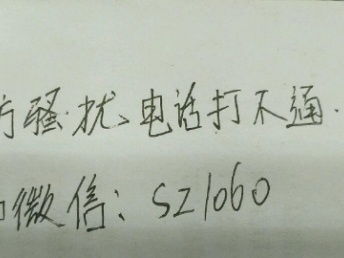 骚扰、电话打不通.
微信：sz1060